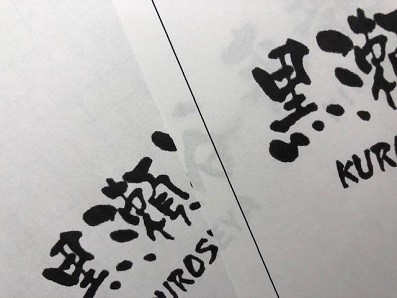 黒瀬
KUROS
黒瀬
KURO